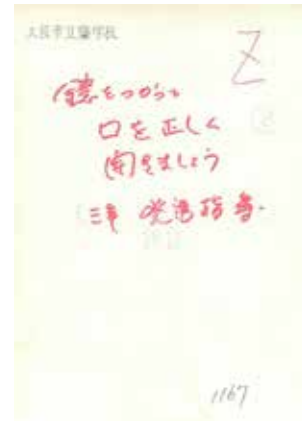 大阪市立聾学校
Z
鏡をつかって
口を正しく
開きましょう
発語指導
1167